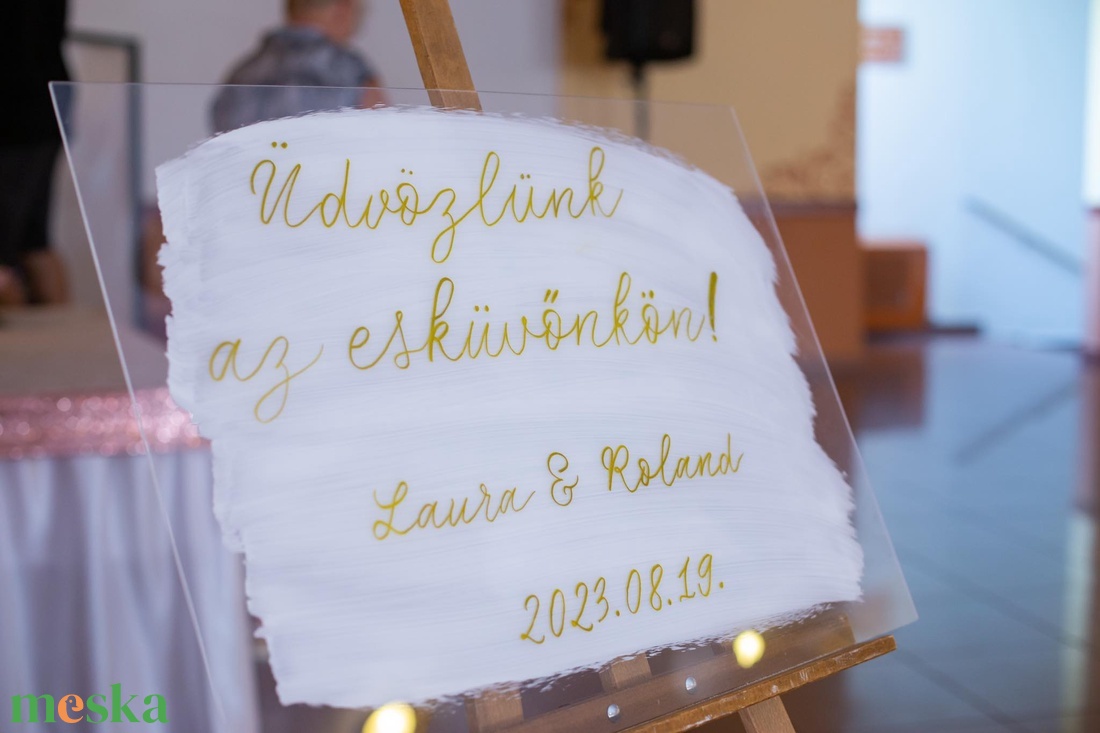 Üdvözlünk
az esküvőnkön!
Laura & Roland
2023.08.19.
meska